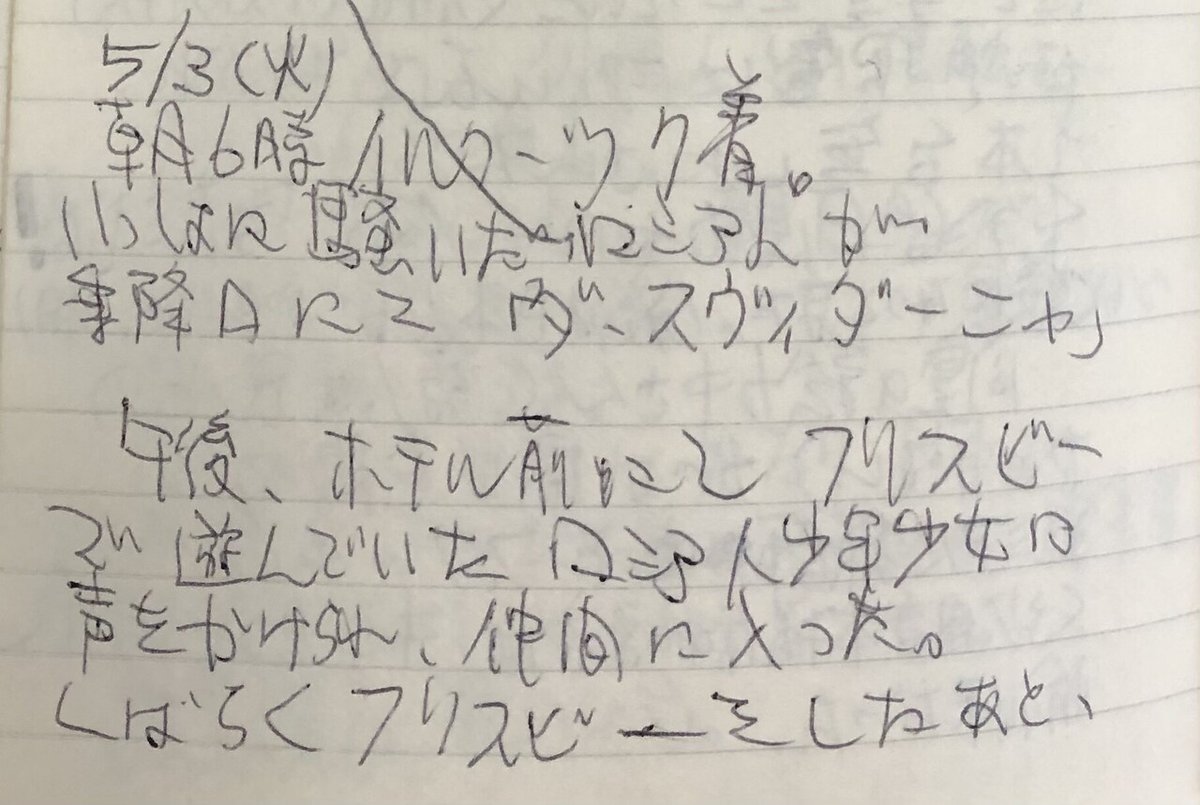 5/3(火)
朝6時 イルクーツク着。
いっしょに騒いだロシア人が
乗降口にて ダ・スヴィダーニャ
午後、ホテル前にて フリスビー
で遊んでいたロシア人少年少女に
声をかけられ、仲間に入った。
しばらくフリスビーをしたあと、